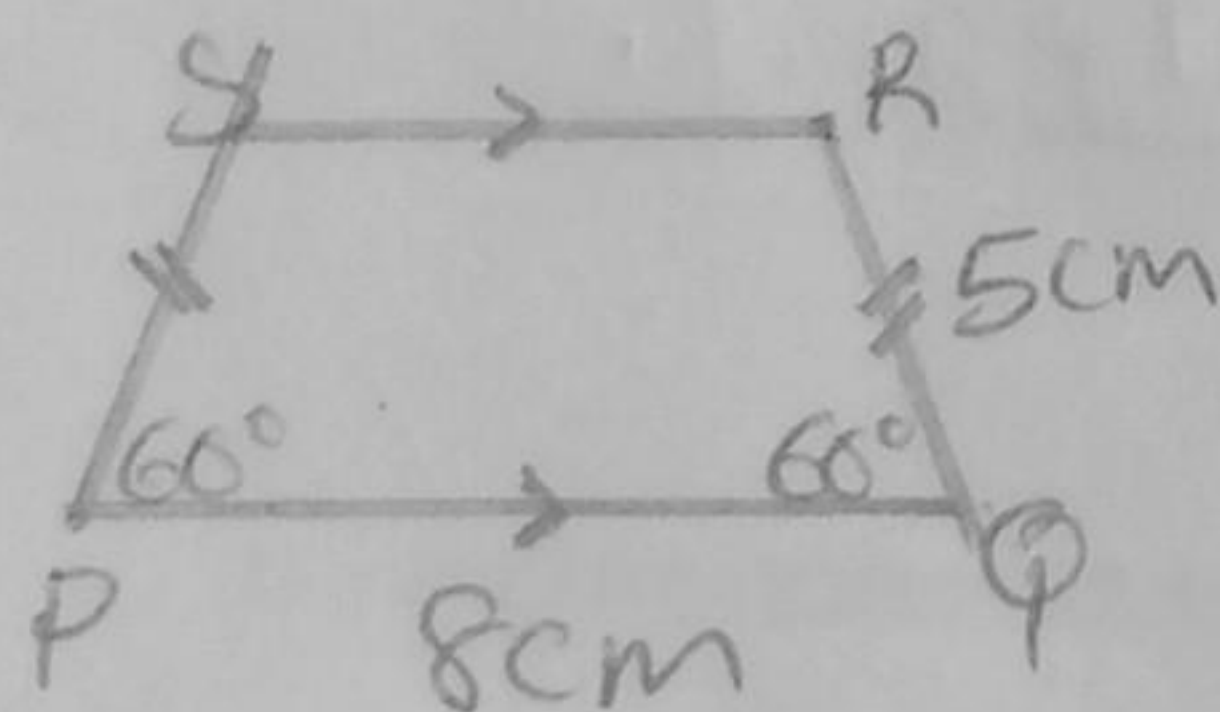 S R
5cm
60° 60°
P Q
8cm